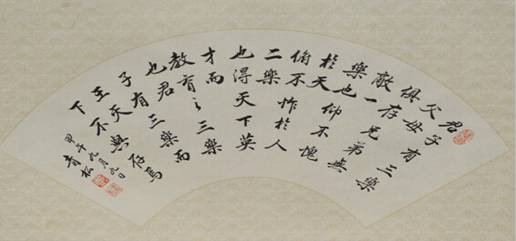 君子有三樂
父母
俱存兄弟無
故一
樂也仰不愧
於天
俯不怍於人
二樂
也得天下英
才而
教育之三樂
也君
子有三樂而
王天
下不與存焉
甲午九月
青松